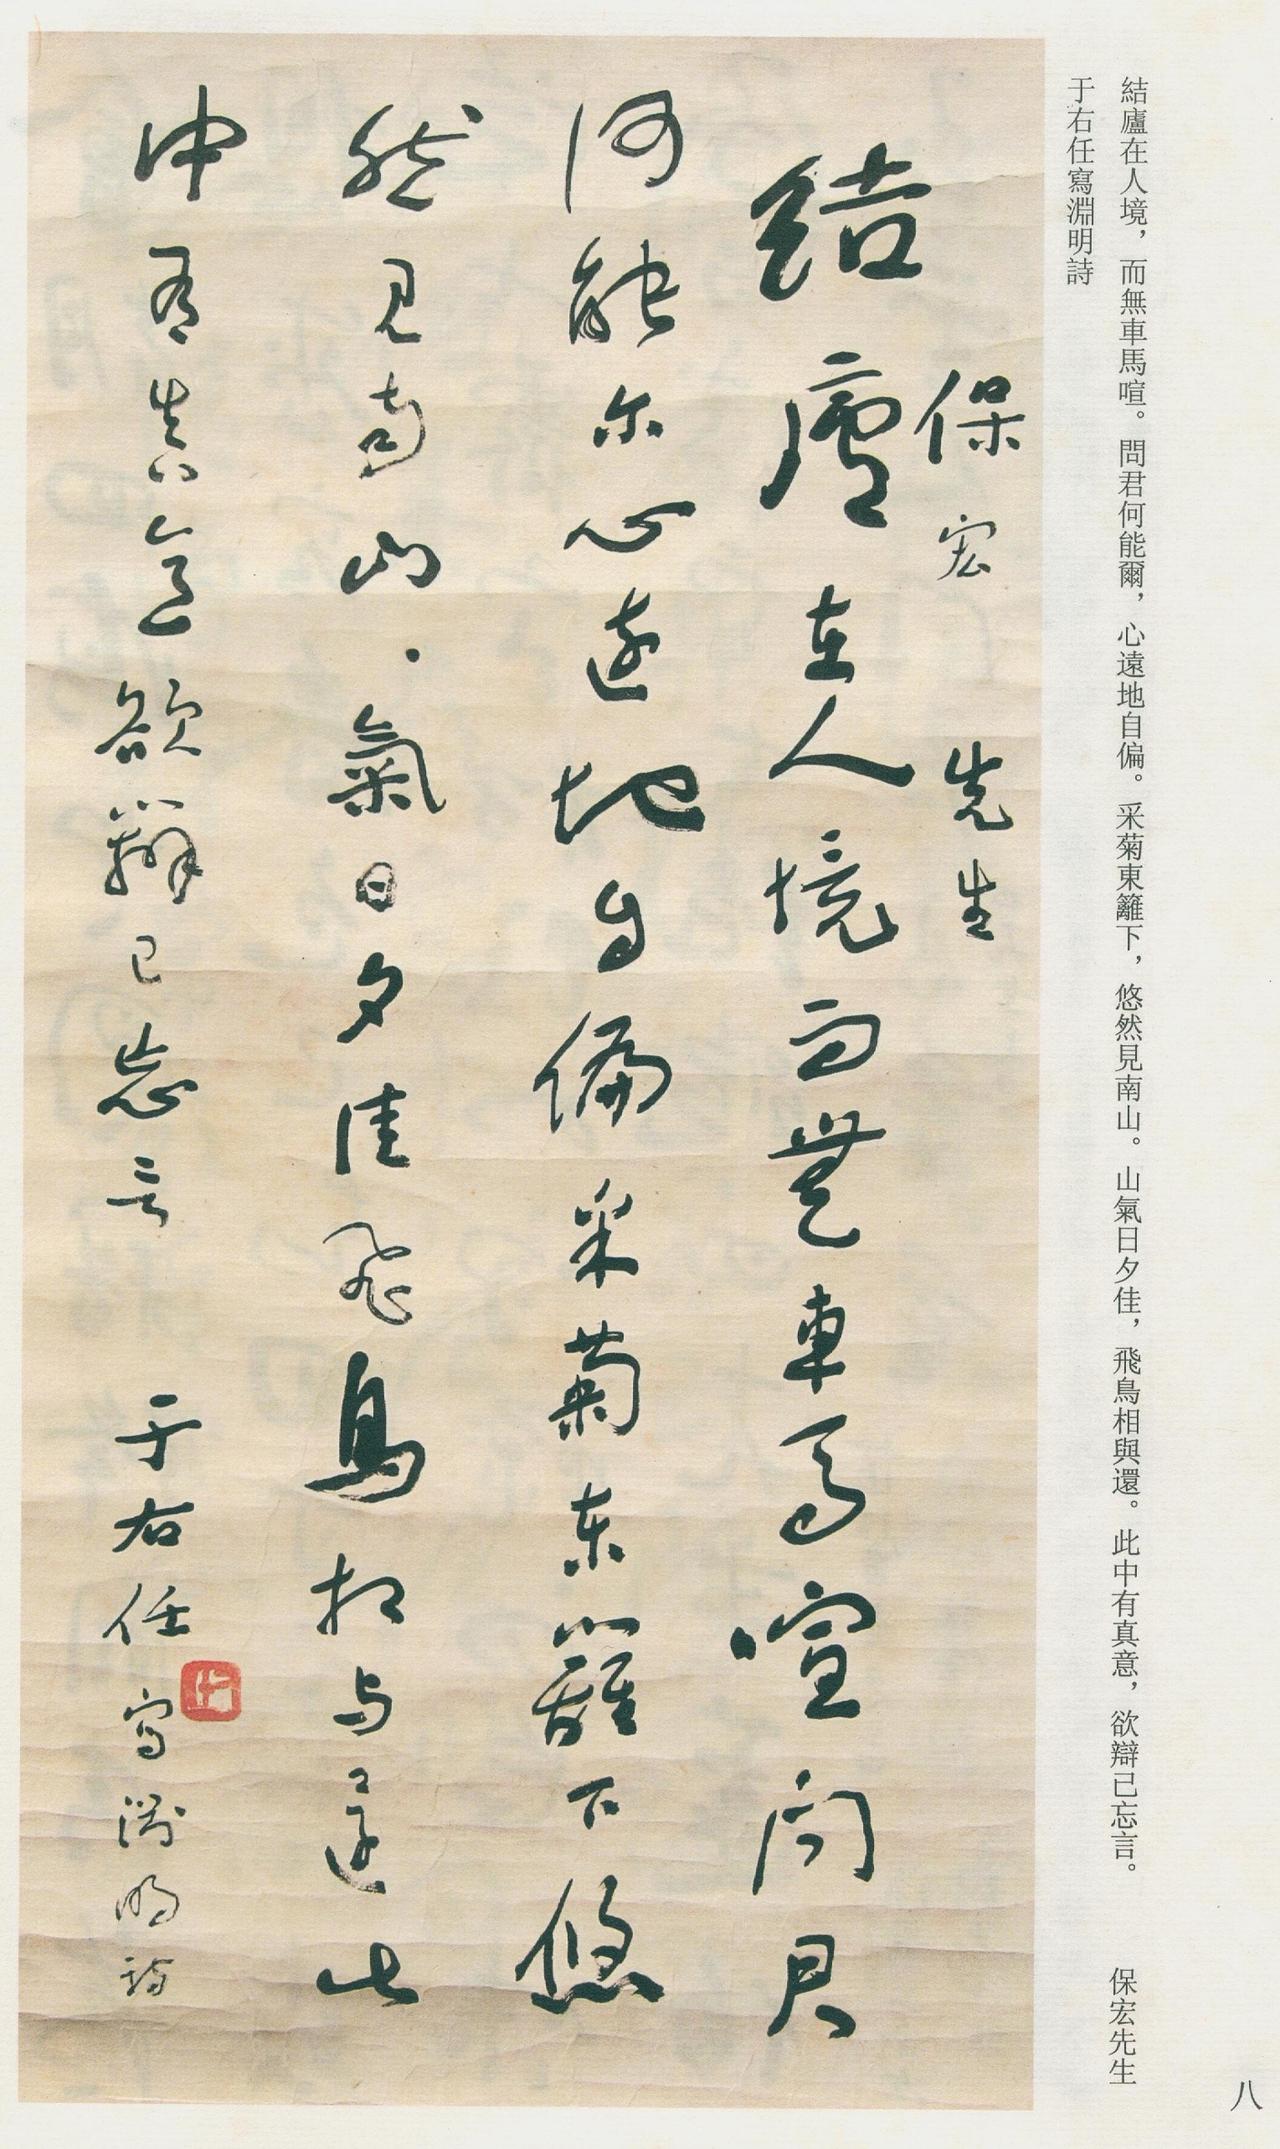 結廬在人境，而無車馬喧。問君何能爾，心遠地自偏。采菊東籬下，悠然見南山。山氣日夕佳，飛鳥相與還。此中有真意，欲辯已忘言。　保宏先生
于右任寫淵明詩
八
保宏先生
結廬在人境而無車馬喧問君
何能尔心遠地自偏采菊东籬下悠
然見南山、氣日夕佳飛鳥相与還此
中有真意欲辯已忘言 于右任寫淵明詩